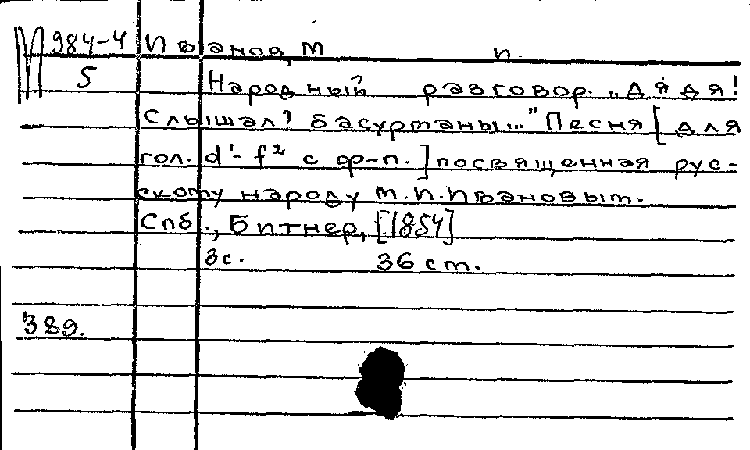 М 984-4 Иванов, М И.
5 Народный разговор. „Дядя!
Слышал? басурманы..." Песня [для
гол. d'- f² с ф-п.] посвященная рус-
скому народу М. И. Ивановым.
Спб., Битнер, [1854]
3с. 36 ст.
389.